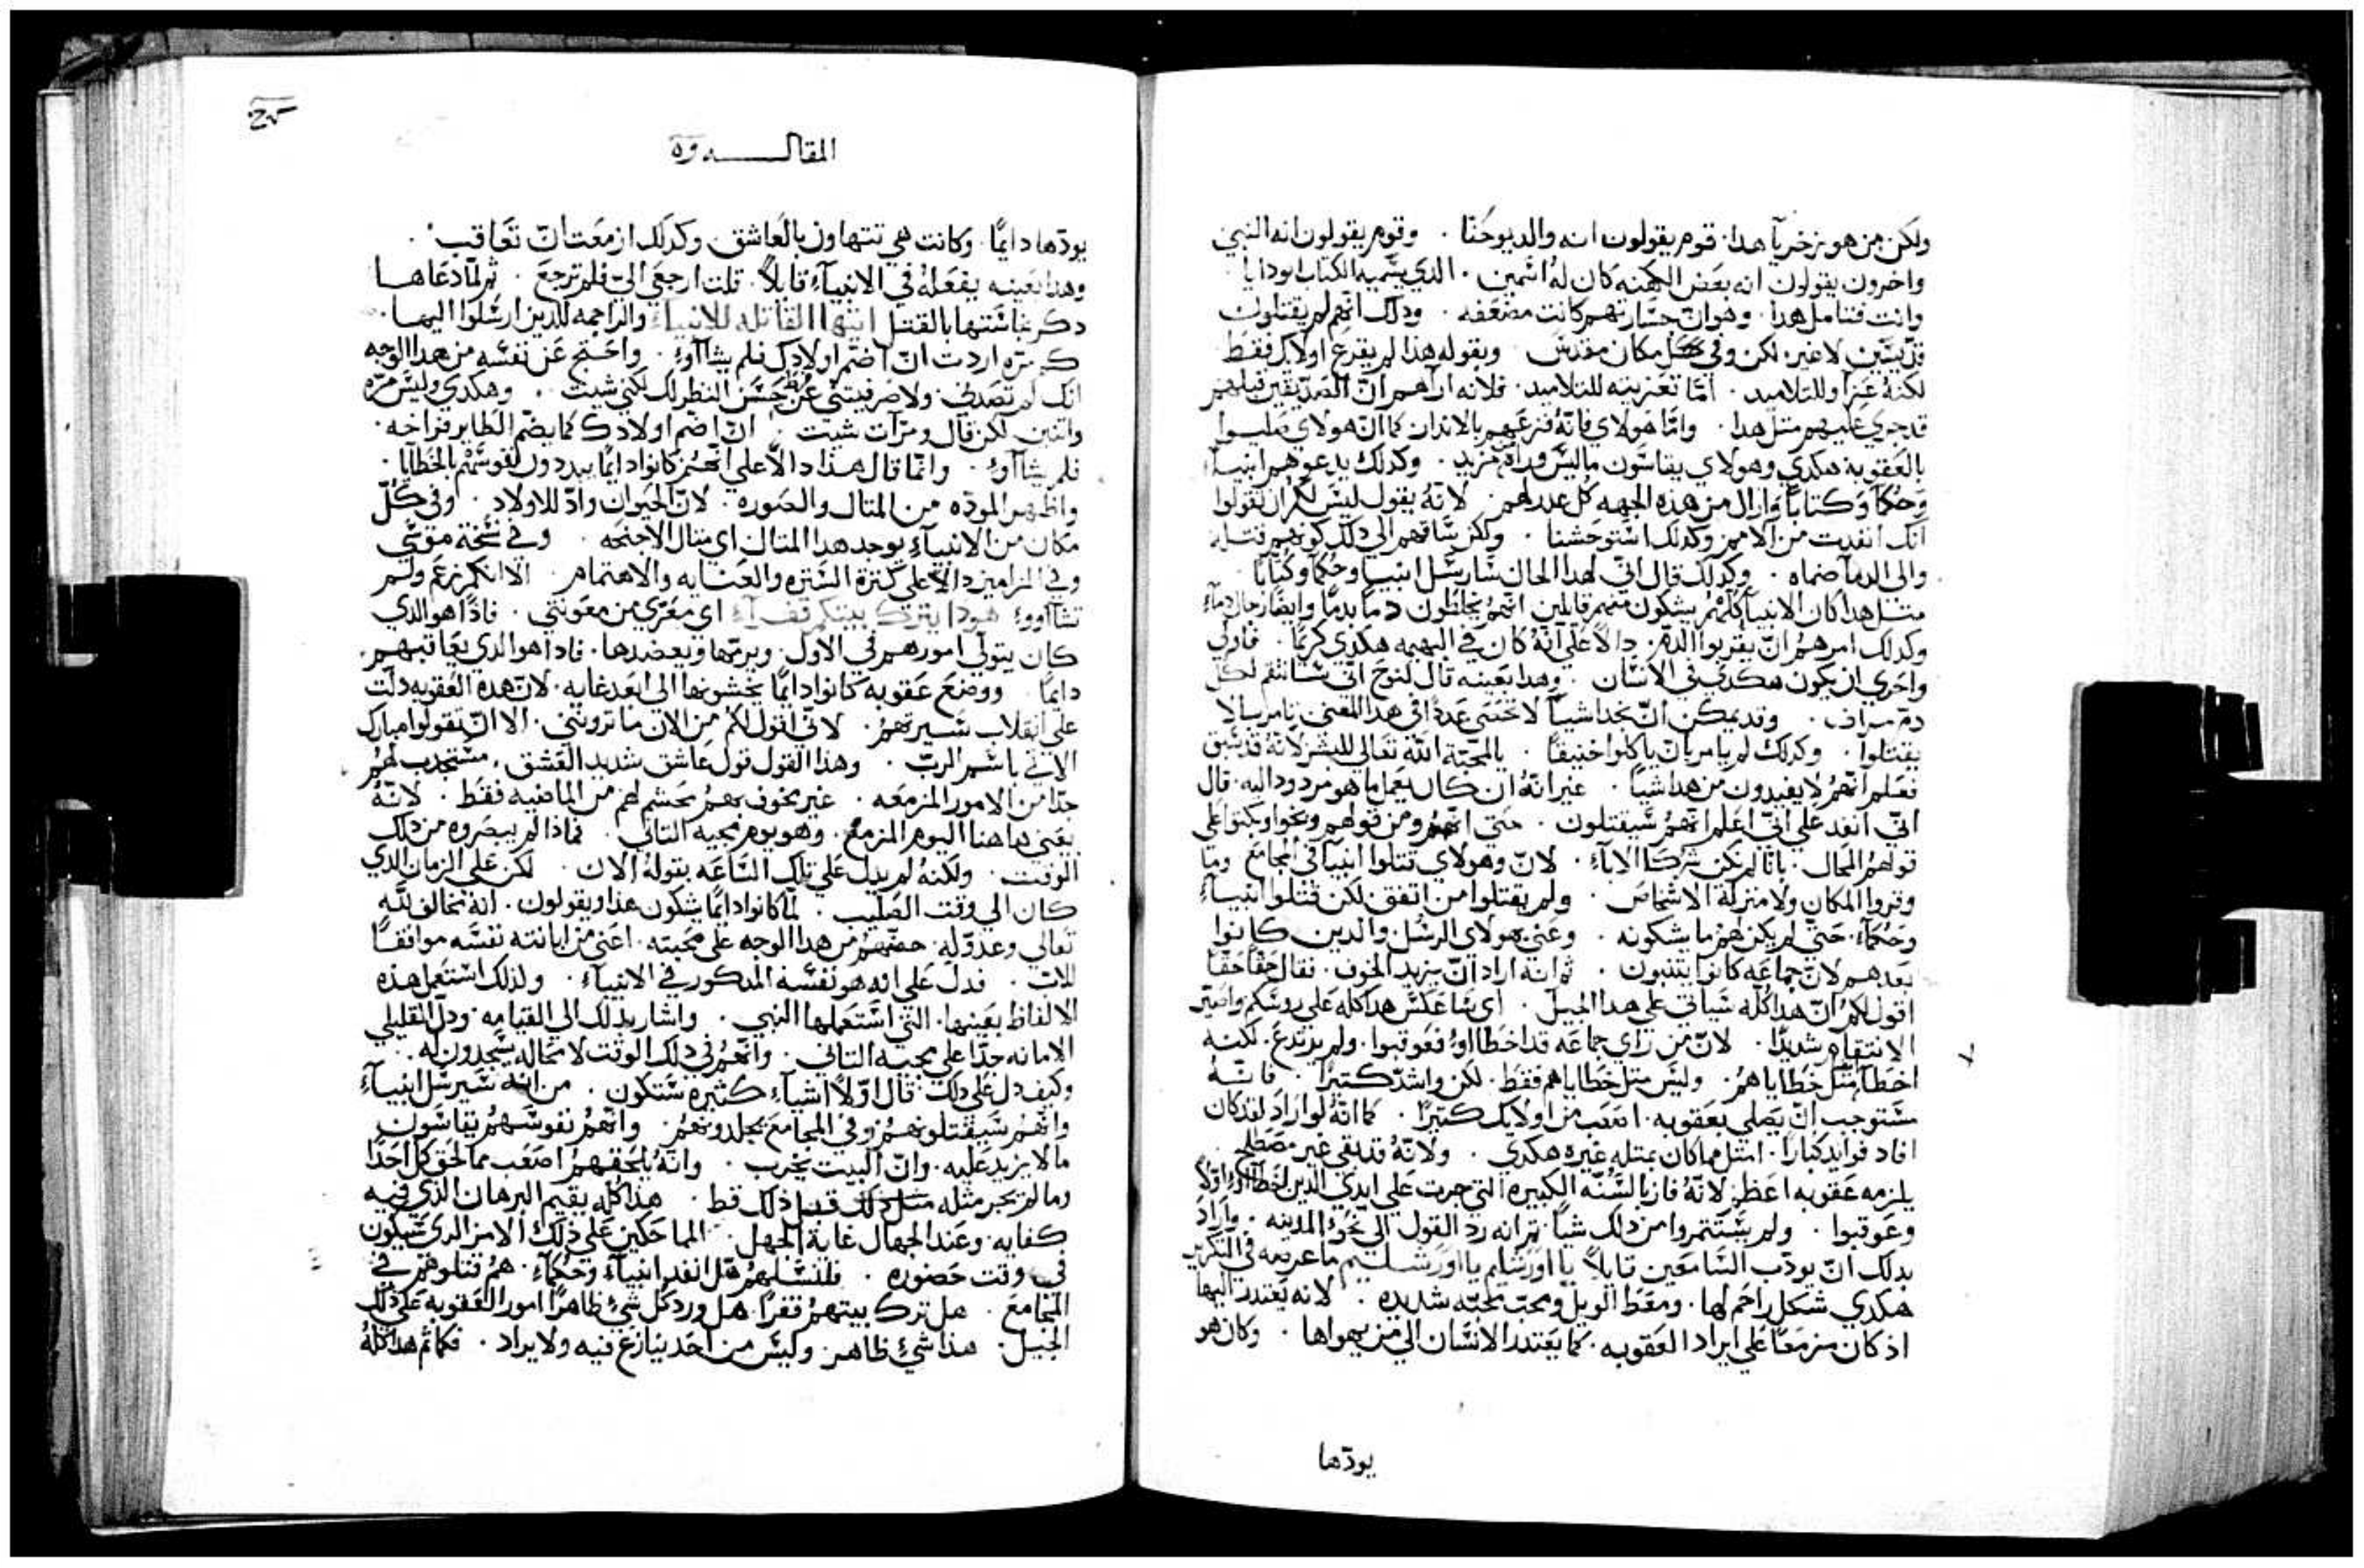 ولكن من هو زخريا هدا. قوم يقولون انه والد يوحنا. وقوم يقولون انه النبي
واخرون يقولون انه بعض الكهنه كان له اسمين. الدي يسميه الكتاب ابودايا
وانت فتامل هدا. وهو ان جسارتهم كانت مضعفه. ودلك انهم لم يقتلون
قديسين لا غير. لكن وفي مكان مقدس وبقوله هذا لم يقرع اولايك فقط
لكنه عزا وللتلاميد. اما تعزيته للتلاميد. فلانه اراهم ان الصديقين قبلهم
قد جري عليهم متل هدا. واما هولاي فانه فزعهم بالاندار كما ان هولاي
بالعقوبة هكدي وهولاي يقاسون ما ليس وراه مزيد. وكدلك يدعوهم انبيا
وحكما وكتابا وازال من هذه الجهه كل عدر لهم. لانه يقول ليس لكم ان تقولوا
انك انفدت من الامم وكدلك استوحشنا. ولكن ساقهم الي دلك كونهم قتله
والي الدما ضماه. وكدلك قال اني لهدا الحال سارسل انبيا وحكما وكتابا.
متل هدا كان الانبيا كلهم يشكون منهم قايلين انهم يخلطون دما بدما وايضا رجال دماء
وكدلك امرهم ان يقربوا الدم. دالا علي انه كان في البهيمه هكدي كريما. فاولي
واحري ان يكون هكدي في الانسان. وهدا بعينه قال لنوح اني سانتقم لكل
دم يراق. وقد يمكن ان تجد اشيا لا تحصي عددا في هدا المعني يامر بها لا
يقتلوا. وكدلك لم يامر بان ياكلوا خنيقا. يا لمحبة الله تعالي للبشر لانه قد سبق
فعلم انهم لا يفيدون من هدا شيا. غير انه ان كان يعمل ما هو مردود اليه. قال
اني انفد علي اني اعلم انهم سيقتلون. حتي انهم ومن قولهم ونجوا وبكتوا علي
قولهم المحال. باننا لم نكن شركا الاباء. لان وهولاي قتلوا انبيا في المجامع وما
وقروا المكان ولا منزلة الاشخاص. ولم يقتلوا من اتفق لكن قتلوا انبياء
وحكماء. حتي لم يكن لهم ما يشكونه. وعني بهولاي الرسل والدين كانوا
بعدهم لان جماعه كانوا يتنبون. ثم انه اراد ان يزيد الخوف. فقال حقا حقا
اقول لكم ان هدا كله سياتي علي هدا الجيل. اي ساعكس هدا كله علي روسكم واصير
الانتقام شديدا. لان من راي جماعه قد اخطااو فعوقبوا. ولم يرتدع. لكنه
اخطا متل خطاياهم. وليس متل خطاياهم فقط. لكن واشد كتيرا. فانه
مستوجب ان يصلي بعقوبه. اتعب من اولايك كتيرا. كما انه لو اراد لقد كان
افاد فوايد كبارا. امتل مما كان بمتله غيره هكدي. ولانه قد بقي غير مصطلح
يلزمه عقوبه اعظم لانه فاز بالسنه الكبيره التي جرت علي ايدي الدين اخطااو اولا
وعوقبوا. ولم يستتمروا من دلك شيا. ثم انه رد القول الي نحو المدينه. واراد
بدلك ان يودب السامعين قايلا يا اورشليم يا اورشليم ما غرضه في التكرير
هكدي شكل راحم لها. ومعط الويل ومحب محبه شديده. لانه يعتدر اليها
اد كان مزمعا علي ايراد العقوبه. كما يعتدر الانسان الي من يهواها. وكان هو
يودها
المقاله
يودها دايما. وكانت هي تتهاون بالعاشق. وكدلك ازمعت ان تعاقب.
وهدا بعينه يفعله في الانبياء قايلا. قلت ارجعي الي فلم ترجع. ثم لما دعاها
دكر نجاستها بالقتل ايتها القاتله للانبياء والراجمه للدين ارسلوا اليها.
كم مره اردت ان اضم اولادك فلم يشااوء. واحتج عن نفسه من هدا الوجه
انك لم تصدني ولا صرفتني عن حسن النظر لك لكني شيت. وهكدي وليس مره
واتنين. لكن قال ومرات شيت ان اضم اولادك كما يضم الطاير فراخه.
فلم يشااوء. وانما قال هذا دالا علي انهم كانوا دايما يبددون نفوسهم بالخطايا.
واظهر الموده من المتال والصوره. لان الحيوان واد للاولاد. وفي كل
مكان من الانبياء يوجد هدا المتال اي متال الاجنحه. وفي تسبحة موسي
وفي المزامير دالا علي كترة الستره والعنايه والاهتمام. الا انكم زعم ولم
تشااووء هودا يترك بيتكم قفراء اي معري من معونتي. فادا هو الدي
كان يتولي امورهم في الاول. ويرمها ويعضدها. فادا هو الدي يعاقبهم
دايما. ووضع عقوبه كانوا دايما يخشونها الي ابعد غايه. لان هده العقوبه دلت
علي انقلاب سيرتهم. لاني اقول لكم من الان ما تروني. الا ان تقولوا مبارك
الاتي باسم الرب. وهذا القول قول عاشق شديد العشق. مستجدب لهم
جدا من الامور المزمعه. غير مخوف بهم يحشم لهم من الماضيه فقط. لانه
يعني هاهنا اليوم المزمع. وهو يوم مجيه التاني. فمادا لم يبصروه من دلك
الوقت. ولكنه لم يدل علي تلك الساعه بقوله الان. لكن علي الزمان الدي
كان الي وقت الصليب. لما كانوا دايما يشكون هذا ويقولون. انه مخالف لله
تعالي وعدو له. حضهم من هدا الوجه علي محبته. اعني من ابانته نفسه موافقا
للاب. فدل علي انه هو نفسه المدكور في الانبياء. ولذلك استعمل هذه
الالفاظ بعينها. التي استعملها النبي. واشار بدلك الي القيامه. ودل القليلي
الامانه جدا علي مجيه التاني. وانهم في دلك الوقت لا محاله يسجدون له.
وكيف دل علي دلك. قال اولا اشياء كثيره ستكون. من انه سيرسل انبياء
وانهم سيقتلونهم وفي المجامع يجلدونهم. وانهم نفوسهم يقاسون
ما لا يزيد عليه. وان البيت يخرب. وانه يلحقهم اصعب مما لحق كل احدا
وما لم يجر مثله قبل ذلك قط. هذا كله يقيم البرهان الذي فيه
كفايه. وعند الجهال غاية الجهل علي ذلك الامر الدي سيكون
في وقت حضوره. فلنسلهم هل انفد انبياء وحكماء. هم قتلوهم في
المجامع. هل ترك بيتهم قفرا. هل ورد كل شيء ظاهرا امور العقوبه علي ذلك
الجيل. هذا شيء ظاهر. وليس من احد ينازع فيه ولا يراد. فكما تم هدا كله